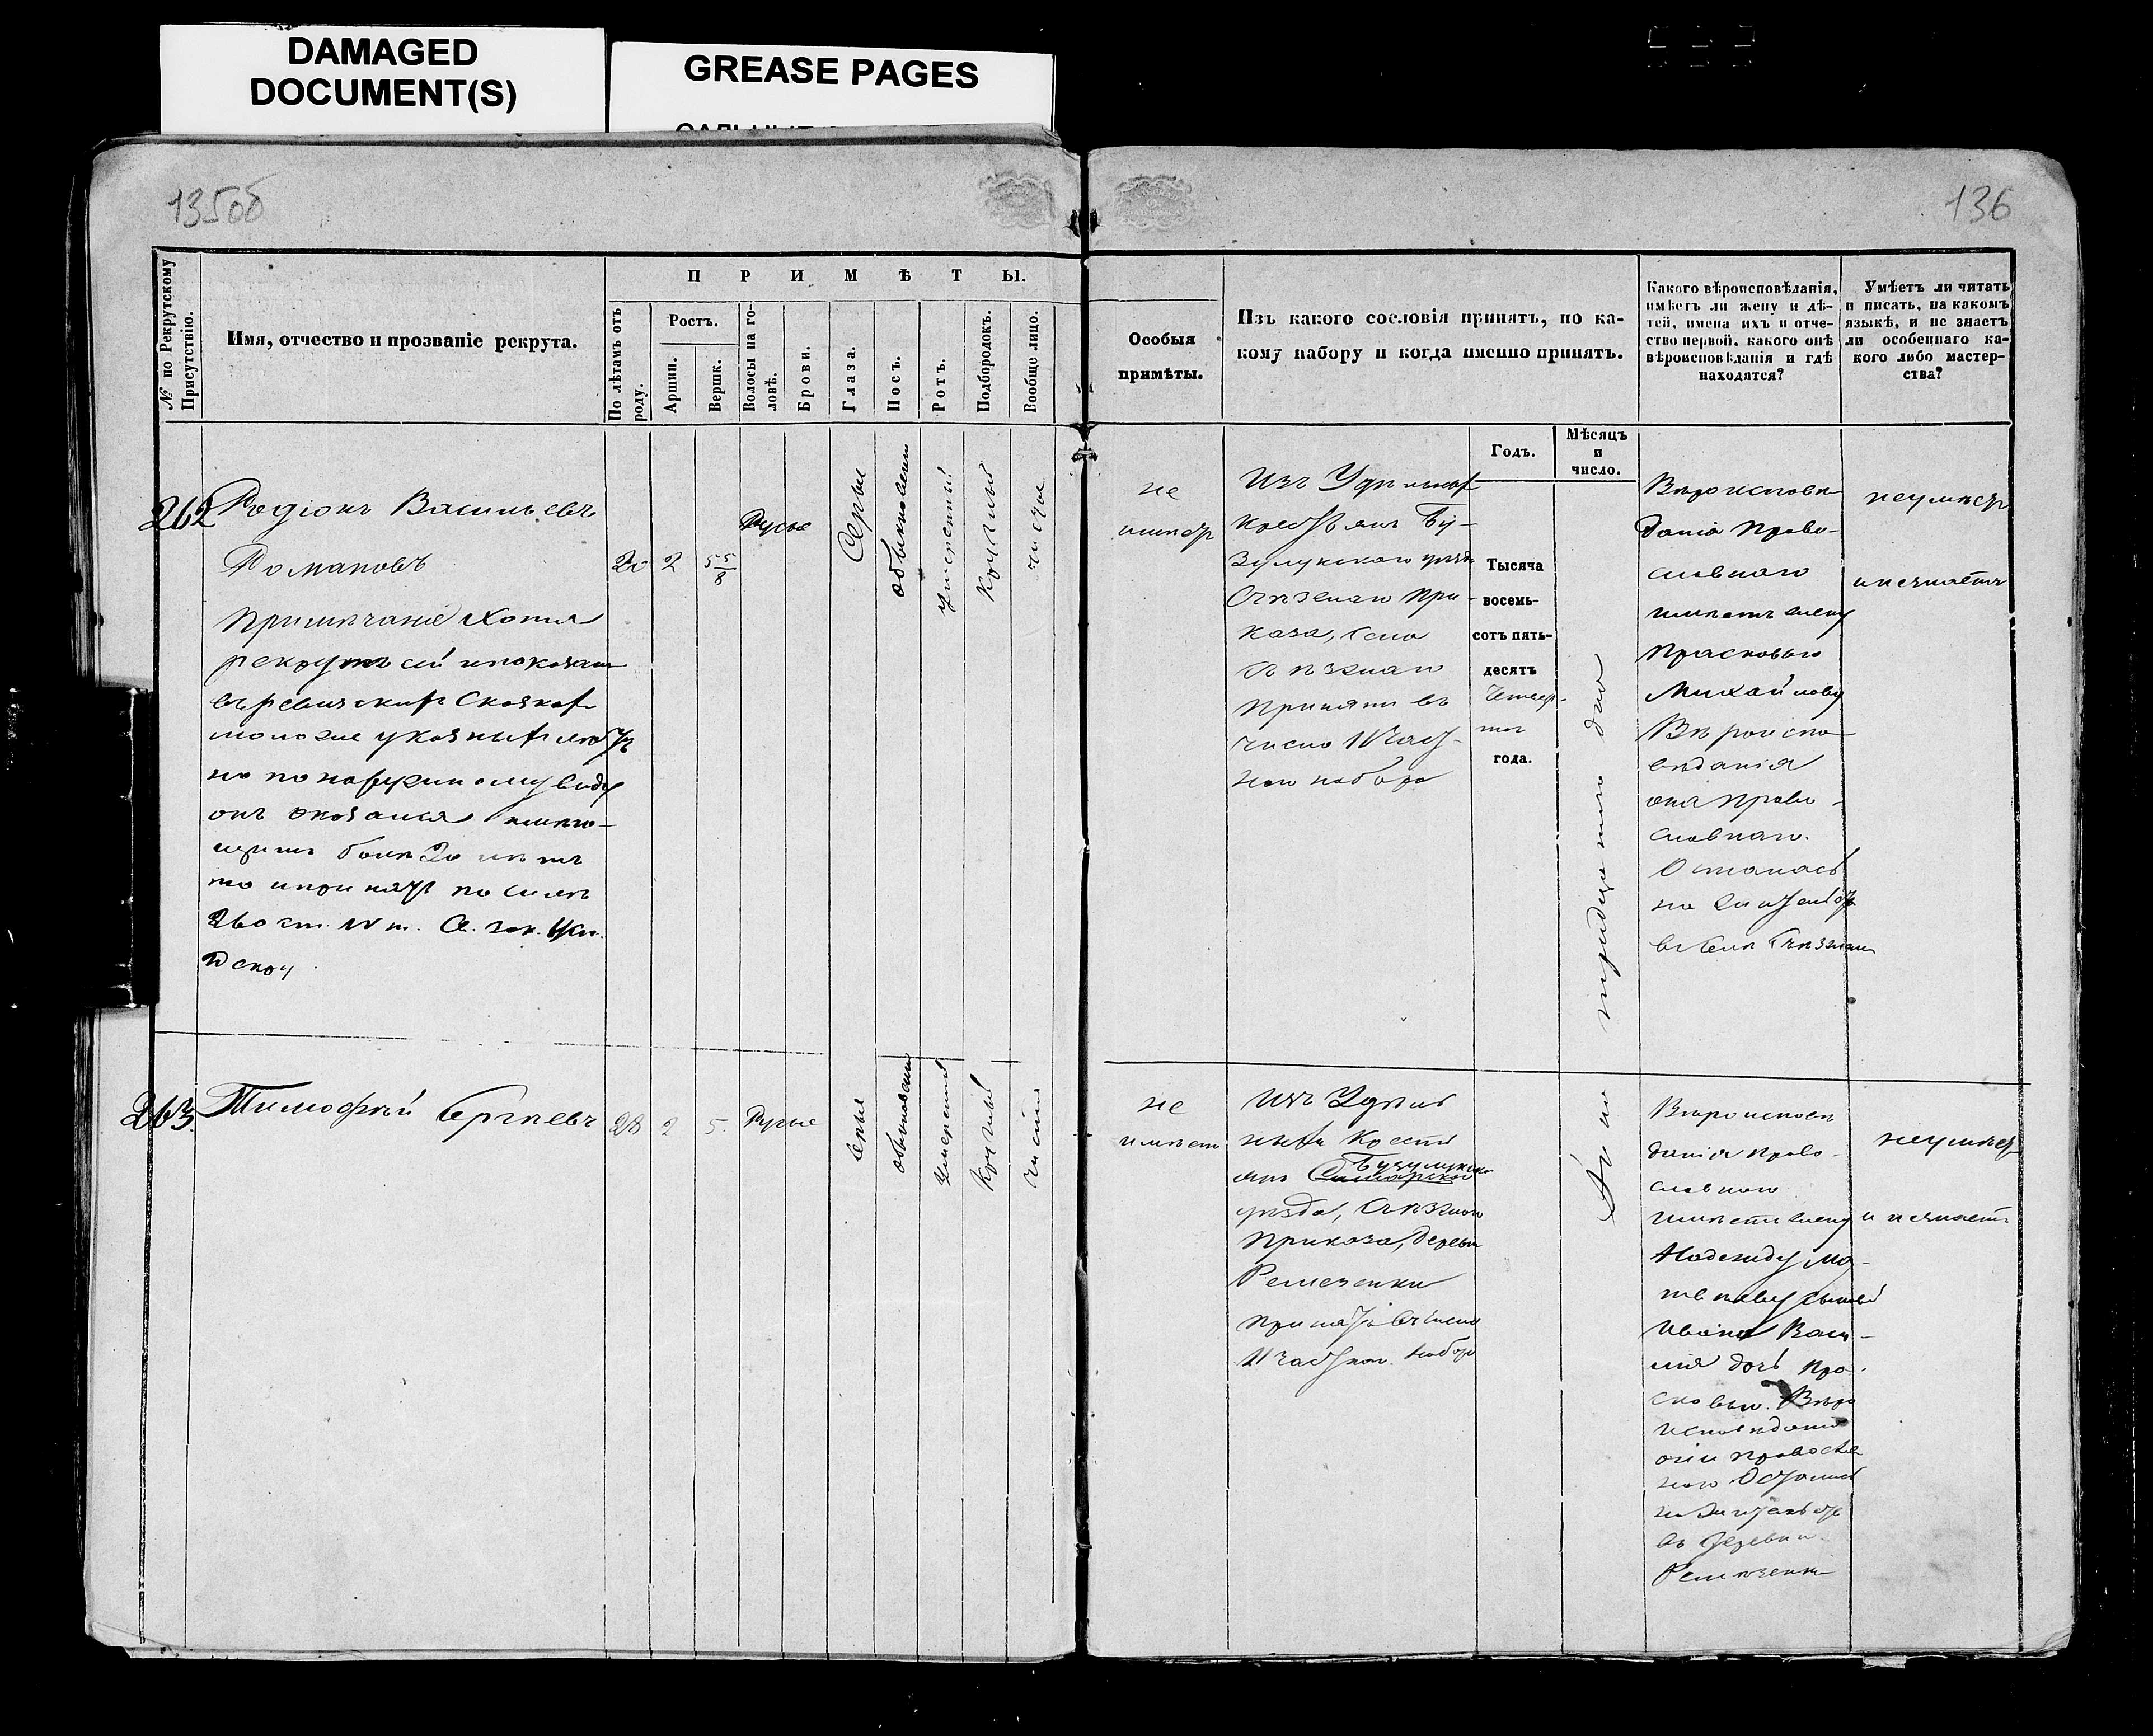 DAMAGED
DOCUMENT(S)
GREASE PAGES
135об
136
№ по Рекрутскому
Присутствію.
Имя, отчество и прозваніе рекрута.
ПРИМѢТЫ.
По лѣтамъ отъ
роду.
Ростъ.
Аршин.
Вершк.
Волосы на го-
ловѣ.
Брови.
Глаза.
Носъ.
Ротъ.
Подбородокъ.
Вообще лицо.
Особыя
примѣты.
Изъ какого сословія принятъ, по ка-
кому набору и когда именно принятъ.
Годъ.
Мѣсяцъ
и
число.
Какого вѣроисповѣданія,
имѣетъ ли жену и дѣ-
тей, имена ихъ и отче-
ство первой, какого онѣ
вѣроисповѣданія и гдѣ
находятся?
Умѣетъ ли читать
и писать, на какомъ
языкѣ, и не знаетъ
ли особеннаго ка-
кого либо мастер-
ства?
262
Родіонъ Васильевъ
Романовъ
Примѣчаніе Хотя
рекрутъ сей и показан
въ ревизских Сказках
моложе указных летъ
но по наружному виду
онъ оказался имею-
щимъ более 20 летъ
то и принятъ по силе
260 ст. IV т. Св. зак. Уст.
20
2
5 5/8
Русые
Серые
обыкновенн
умеренный
Круглый
чистое
не
имеетъ
Изъ Удельных
крестьянъ Бу-
зулукского уезда
Съезжаго При-
каза, села
Съезжаго
Принятъ въ
число 11 част-
наго набора
Тысяча
восемь-
сотъ пять-
десятъ
Четвер-
таго
года.
Вероиспове-
данія Право-
славнаго
имеетъ жену
Прасковью
Михайлову
Вероиспо-
веданія
она Право-
славнаго.
Осталась
на жительстве
въ селе Съезжем
неумеетъ
и незнаетъ
263.
Тимофей Сергеевъ
28
2
5.
Русые
серые
обыкновенн
умеренный
Круглый
чистое
не
имеетъ
Изъ Удель
ныхъ Кресть
янъ Бузулукского
уезда, Съезжаго
Приказа, деревни
Ремезенки
принятъ въ число
11 частнаго набора
Вероиспове
данія Право-
славнаго
имеетъ жену
Надежду Ма-
твееву сыновей
Ивана Васи-
лія дочь Пра-
сковью. Веро
исповеданія
они Православ
наго Остались
на жительстве
въ деревни
Ремезенки
неумеетъ
и незнаетъ